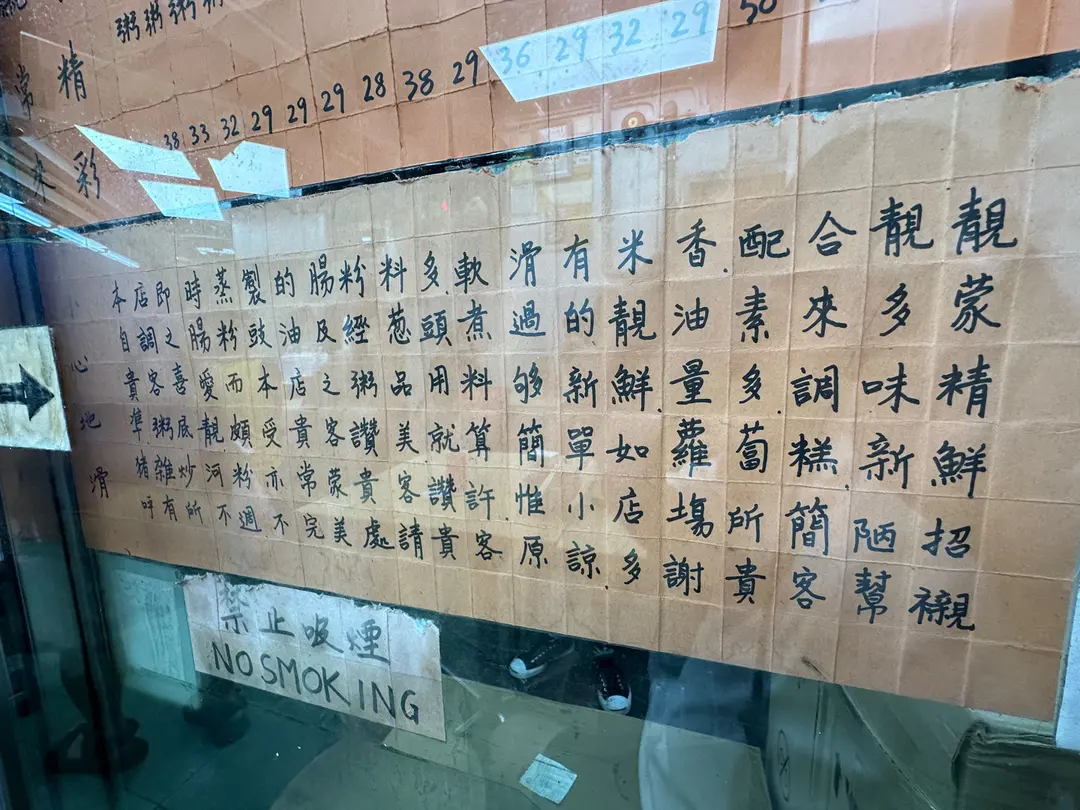 粥粥粥粥
精彩
常
38 33 32 29 29 29 28 38 29 36 29 32 29
小心地滑
本店即時蒸製的腸粉料多軟滑有米香.配合靚靚
自調之腸粉豉油及經葱頭煮過的靚油素來多蒙
貴客喜愛而本店之粥品用料够新鮮量多調味精
準.粥底靚頗受貴客讚美就算簡單如蘿蔔糕.新鮮
猪雜炒河粉亦常蒙貴客讚許.惟小店塲所簡陋招
呼有所不週不完美處請貴客原諒.多謝貴客幫襯
禁止吸煙
NO SMOKING